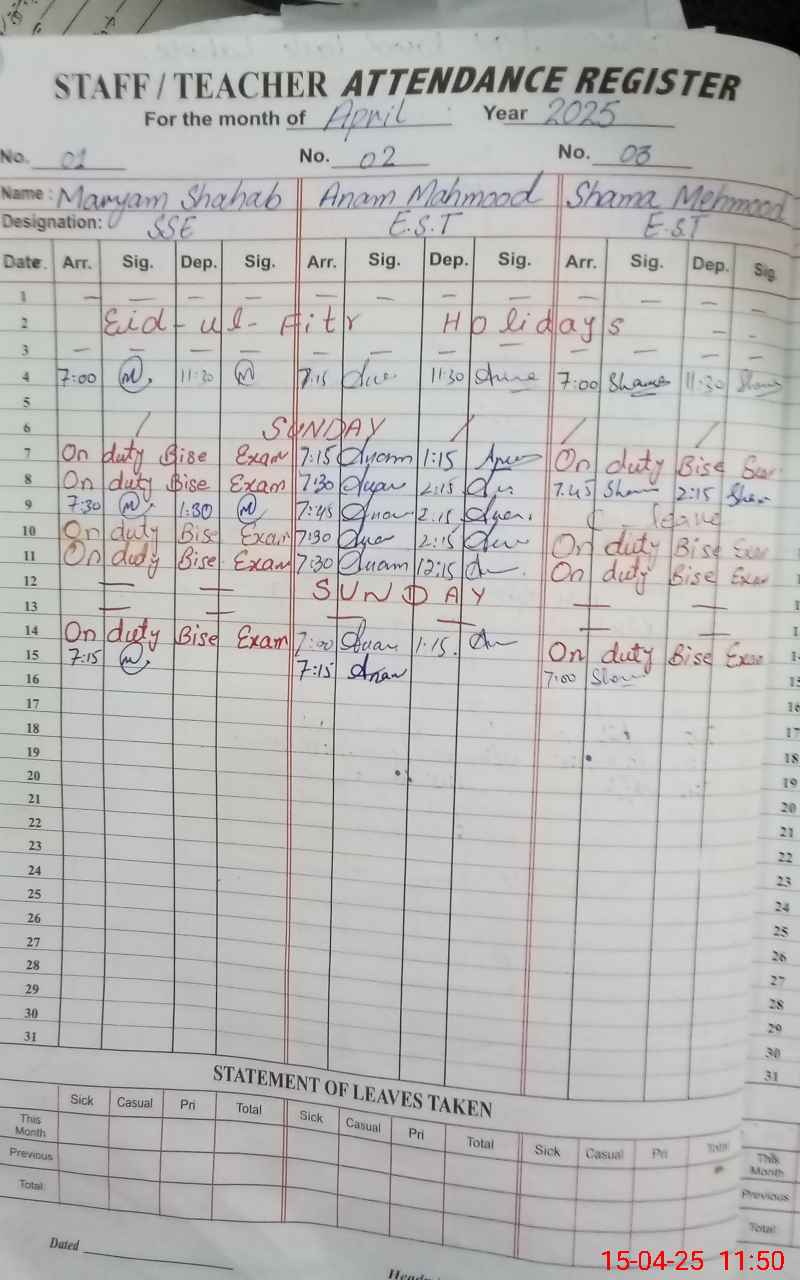 STAFF / TEACHER ATTENDANCE REGISTER
For the month of April Year 2025
No. 01 No. 02 No. 03
Name : Maryam Shahab Anam Mahmood Shama Mehmood
Designation: SSE E.S.T E.S.T
Date. Arr. Sig. Dep. Sig. Arr. Sig. Dep. Sig. Arr. Sig. Dep. Sig.
1 — — — — — — — — — — — —
2 Eid-ul-Fitr Holidays — —
3 — — — — — — — — — — — —
4 7:00 M 11:30 M 7:15 11:30 7:00 Shama 11:30 Shama
5
6 / SUNDAY / / /
7 On duty Bise Exam 7:15 Anam 1:15 On duty Bise
8 On duty Bise Exam 7:30 2:15 7:45 Sham 2:15 Sham
9 7:30 M 1:30 M 7:45 2:15 C Leave
10 On duty Bise Exam 7:30 2:15 On duty Bise Exam
11 On duty Bise Exam 7:30 Anam 12:15 On duty Bise Exam
12 — — SUNDAY
13 — — — — — —
14 On duty Bise Exam 7:00 Anam 1:15 On duty Bise Exam
15 7:15 M 7:15 Anam 7:00
16
17 16
18 17
19 18
20 19
21 20
22 21
23 22
24 23
25 24
26 25
27 26
28 27
29 28
30 29
31 30
31
STATEMENT OF LEAVES TAKEN
Sick Casual Pri Total Sick Casual Pri Total Sick Casual Pri Total
This Month This Month
Previous Previous
Total Total
Dated
15-04-25 11:50